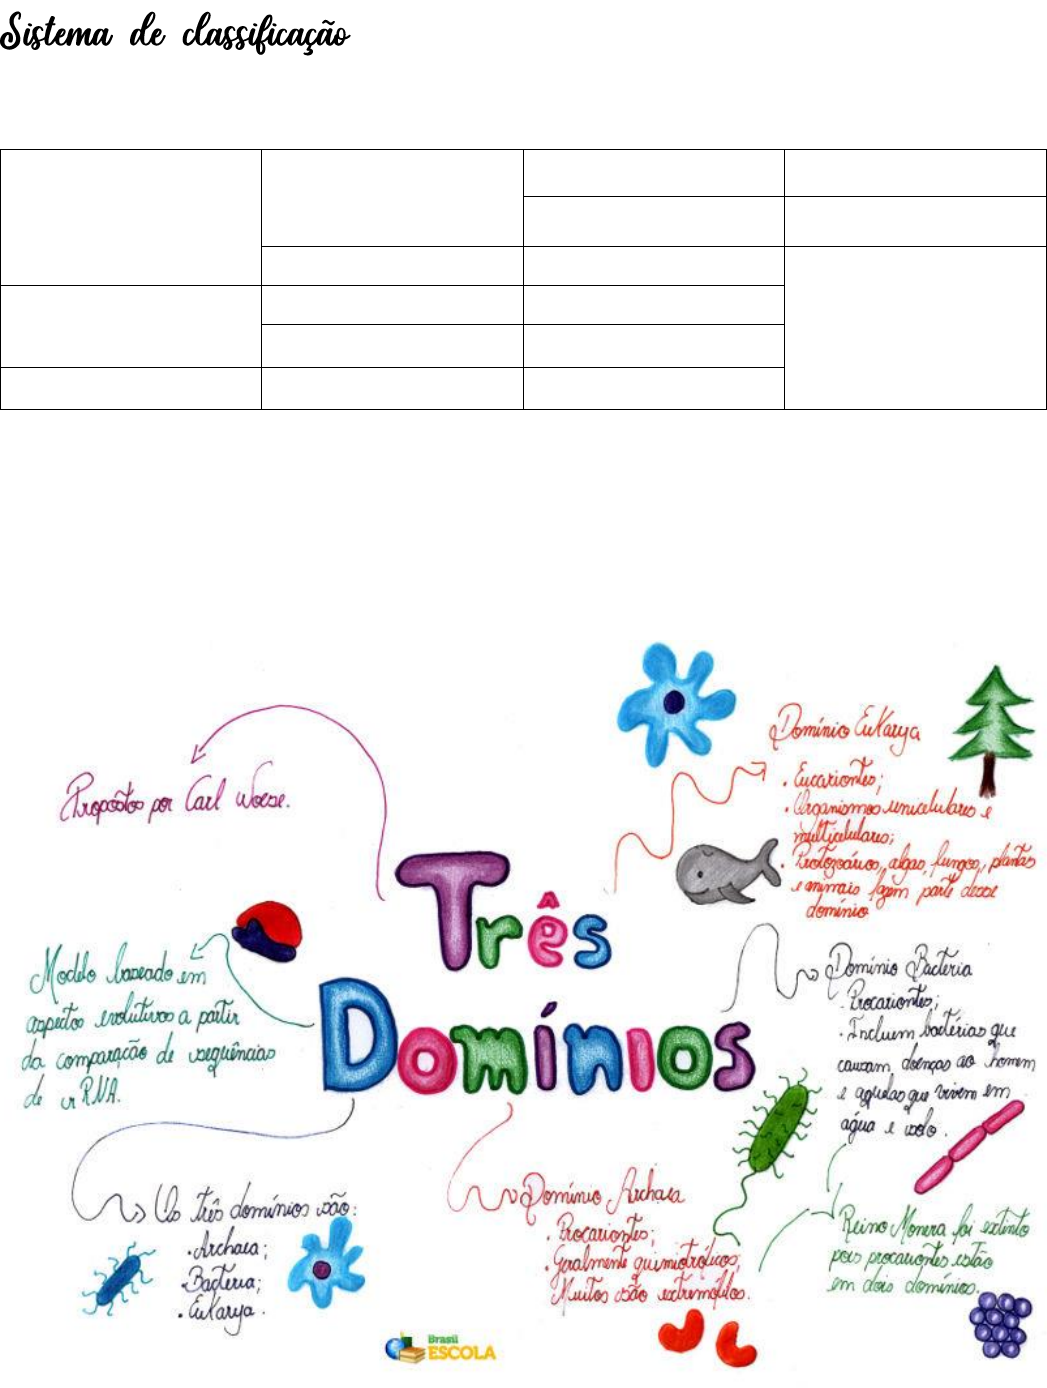 Sistema de classificação
Propostos por Carl Woese.
Domínio Eukarya
. Eucariontes;
. Organismos unicelulares e
multicelulares;
. Protozoários, algas, fungos, plantas
e animais fazem parte desse
domínio
Três
Domínios
Modelo baseado em
aspectos evolutivos a partir
da comparação de sequências
de rRNA.
Domínio Bacteria
. Procariontes;
. Incluem bactérias que
causam doenças ao homem
e aquelas que vivem em
água e solo.
Os três domínios são:
. Archaea;
. Bacteria;
. Eukarya.
Domínio Archaea
. Procariontes;
. Geralmente quimiotróficos;
Muitos são extremófilos.
Reino Monera foi extinto
pois procariontes estão
em dois domínios.
Brasil
ESCOLA